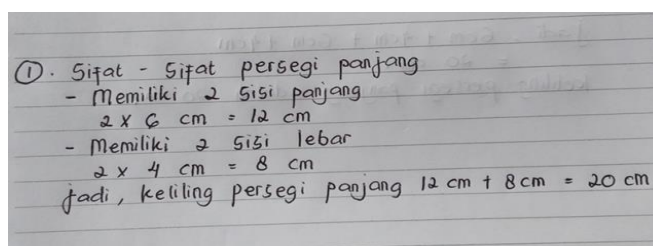 ①. Sifat - Sifat persegi panjang
- Memiliki 2 sisi panjang
2 x 6 cm = 12 cm
- Memiliki 2 sisi lebar
2 x 4 cm = 8 cm
jadi, keliling persegi panjang 12 cm + 8 cm = 20 cm